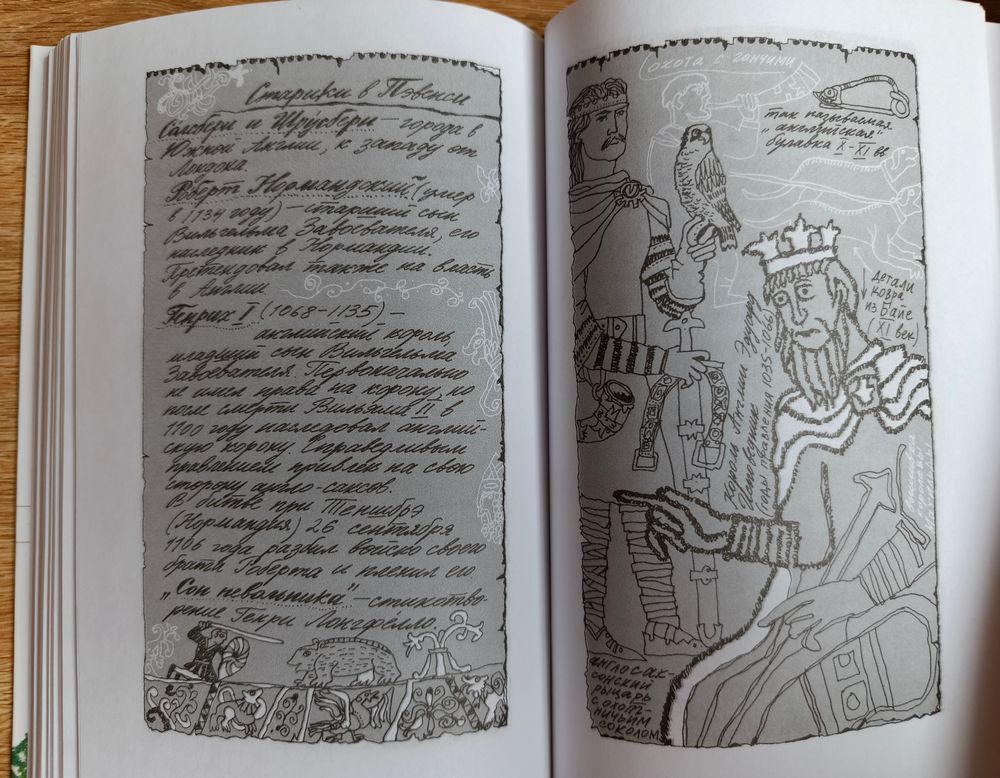 Старики в Пэвенси
Солсбери и Шрусбери — города в
Южной Англии, к западу от
Лондона.
Роберт Нормандский (умер
в 1134 году) — старший сын
Вильгельма Завоевателя, его
наследник в Нормандии.
Претендовал также на власть
в Англии
Генрих I (1068–1135) —
английский король,
младший сын Вильгельма
Завоевателя. Первоначально
не имел права на корону, но
после смерти Вильяма II в
1100 году наследовал англий-
скую корону. Справедливым
правлением привлёк на свою
сторону англо-саксов.
В битве при Теншбрэ
(Нормандия) 26 сентября
1106 года разбил войско своего
брата Роберта и пленил его.
„Сон невольника" — стихотво-
рение Генри Лонгфелло.
охота с гончими
так называемая
„английская"
булавка X–XI вв
детали
ковра
из Байе
(XI век)
король Англии Эдуард
Исповедник
(годы правления 1035–1066)
англосак-
сонский
рыцарь
с охот-
ничьим
соколом